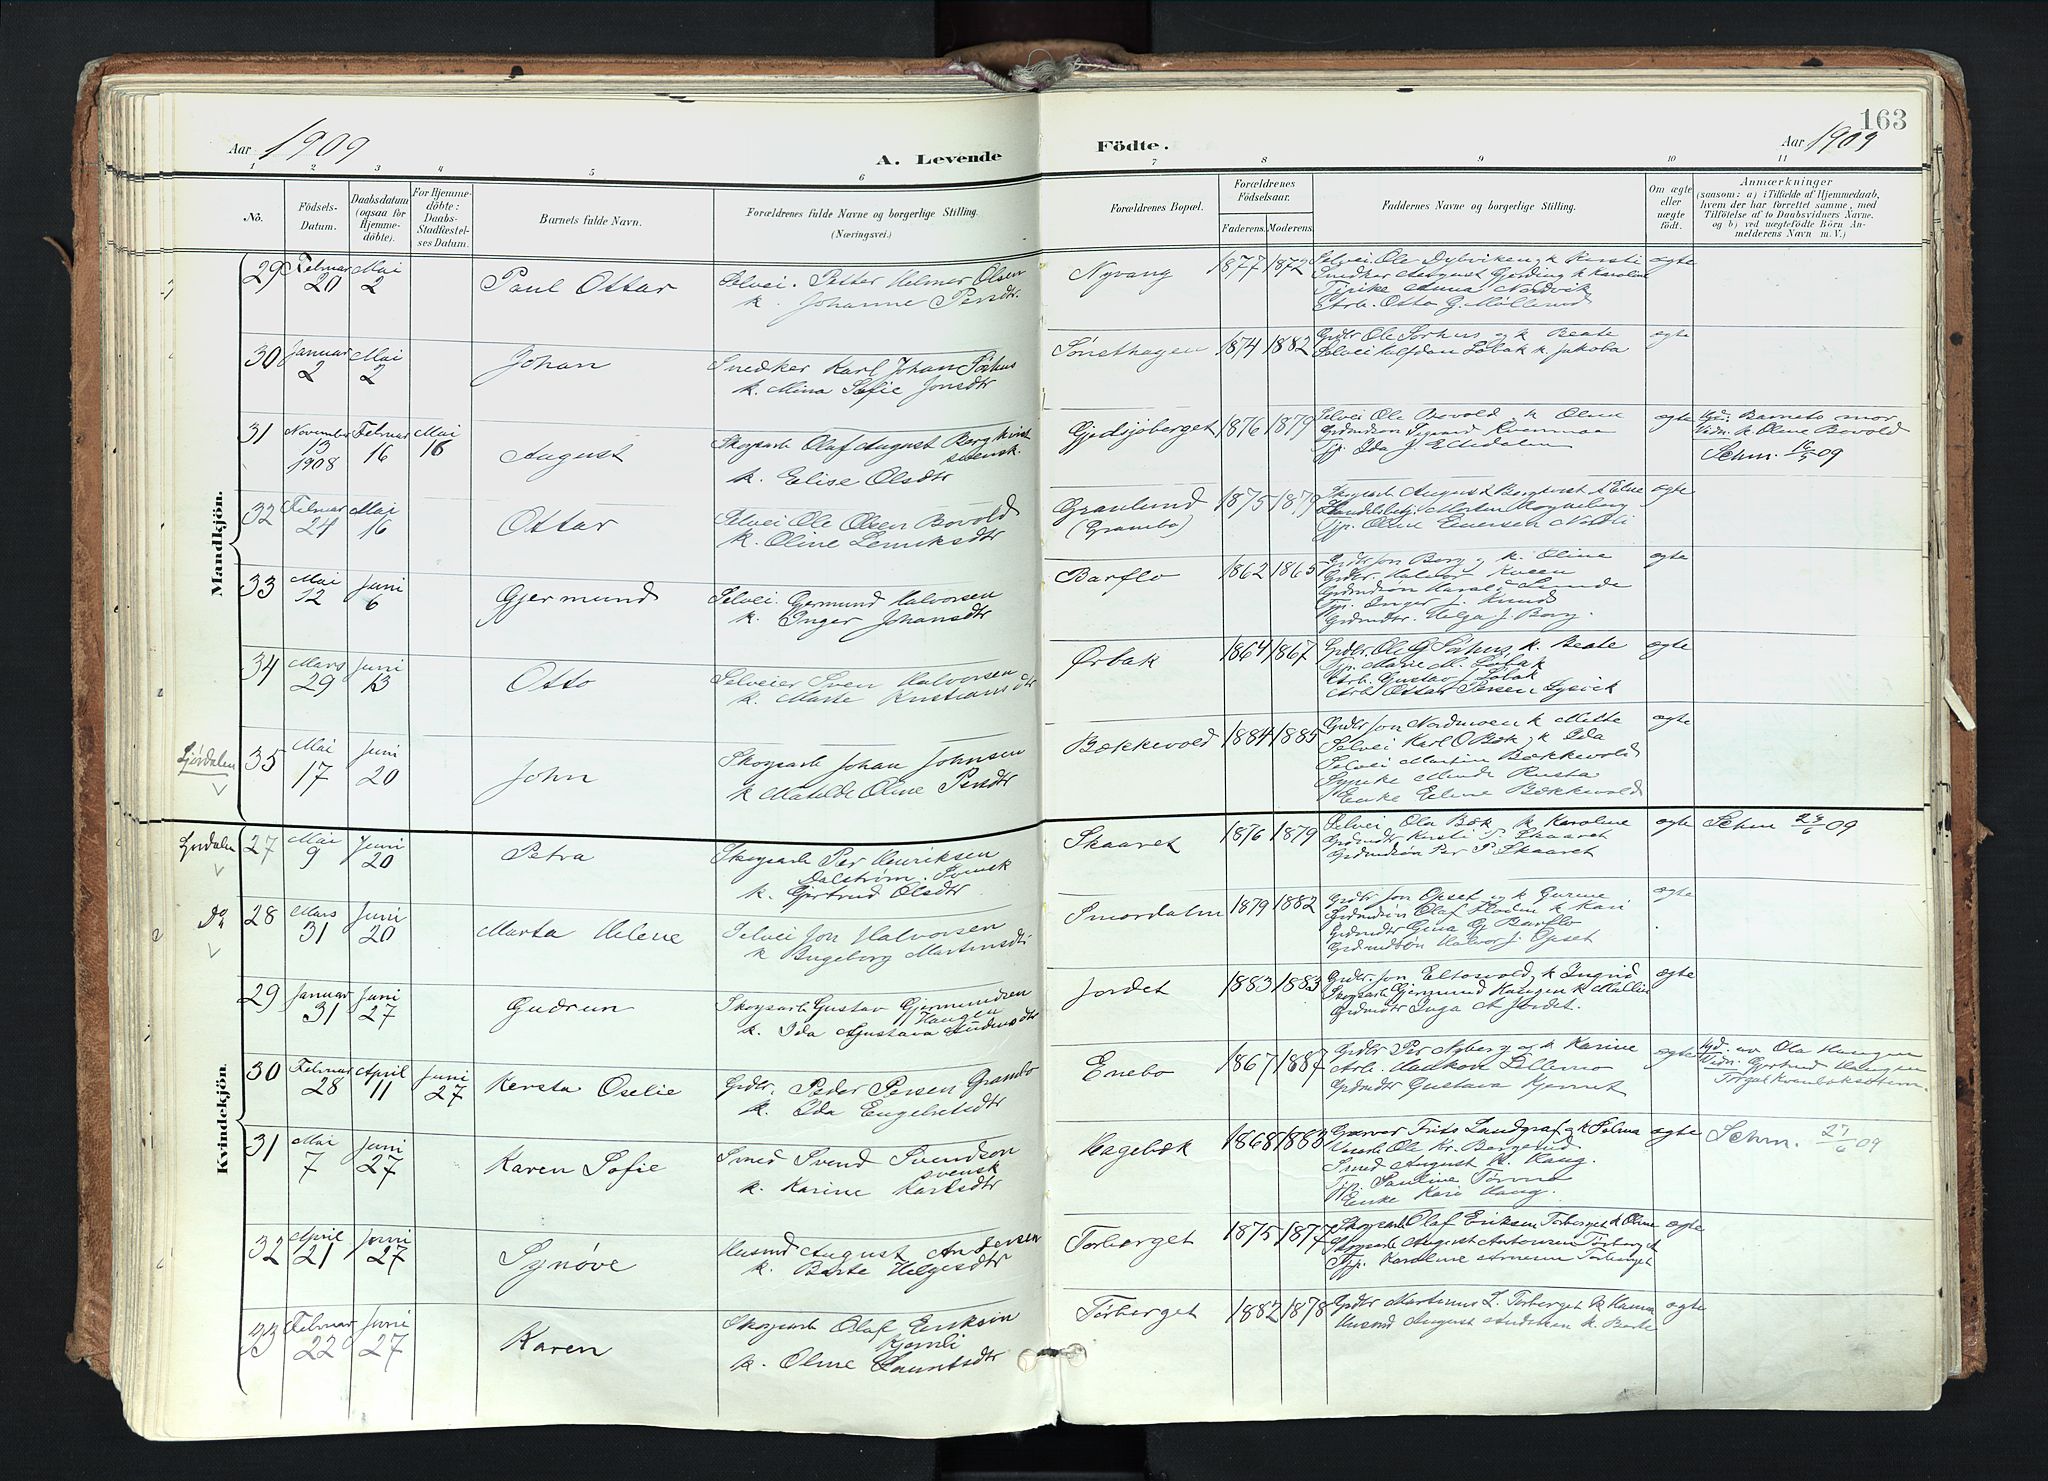 163
Aar 1909
A. Levende
Födte.
Aar 1909
1 2 3 4 5 6 7 8 9 10 11
No.
Födsels-Datum.
Daabsdatum (ogsaa for Hjemme-döbte).
For Hjemme-döbte: Daabs-Stadfæstel-ses Datum.
Barnets fulde Navn.
Forældrenes fulde Navne og borgerlige Stilling. (Næringsvei.)
Forældrenes Bopæl.
Forældrenes Födselsaar.
Faderens. Moderens.
Faddernes Navne og borgerlige Stilling.
Om ægte eller uægte födt.
Anmærkninger
(saasom: a) i Tilfælde af Hjemmedaab, hvem der har forrettet samme, med Tilföielse af to Daabsvidners Navne, og b) ved uægtefödte Börn An-melderens Navn m. V.)
Mandkjön.
29 Februar 20 Mai 2 Paul Ottar
Selvei. Petter Helmer Olsen
k. Johanne Persdtr.
Nyvang 1877 1872
Selvei Ole Dybviken k. Kirsti
Snedker August Gjerding k. Karoline
Pike Anna Nordvik
Arb. Otto G. Møllerud
ægte
30 Januar 2 Mai 2 Johan
Snedker Karl Johan Sørhus
k. Mina Sofie Jonsdtr
Sønsthagen 1874 1882
Grdbr Ole Sørhus og k Beate
Selvei Halfdan Løbak k. Jakoba
ægte
31 November 13 1908 Februar 16 Mai 16 August
Skogsarb Olaf August Bergkvist
svensk.
k. Elise Olsdtr
Gjedsjøberget 1876 1879
Selvei Ole Bovold k Oline
Tjp. Ida J. Eltedalen
ægte
Hjd: Barnets mor
Vidn: k. Oline Bovold
Schm. 16/5 09
32 Februar 24 Mai 16 Ottar
Selvei Ole Olsen Bovold
k. Oline Lemiksdtr
Granlund (Grambo) 1875 1879
Skogsarb August Bergkvist k Elise
Handelsbetj. Morten Rogneberg
Tjp. Oline Emersen Nordli
ægte
33 Mai 12 Juni 6 Gjermund
Selvei. Gjermund Halvorsen
k. Inger Johansdtr
Barflo 1862 1865
Grdbr Jon Berg k. Oline
Grdbr. Halvor Kveen
Grdmdsøn Harald Lunde
Tjp. Inger J. Knuds
Grdmdtr. Helga J. Berg.
ægte
34 Mars 29 Juni 13 Otto
Selveier Sven Halvorsen
k. Marte Kristiansdtr
Ørbak 1864 1867
Grdbr. Ole G Sørhus, k. Beate
Tjp. Marie M. Løbak
Arb. Gustav J Løbak
Arb Ottar Persen Lysvik
ægte
Ljørdalen
35 Mai 17 Juni 20 John
Skogsarb Johan Johnsen
k Matilde Oline Persdtr
Bækkevold 1884 1885
Grdbr Jon Nordmoen k Mette
Selvei Karl O Bæk k Ida
Selvei Martin Bækkevold
Enke Eline Bækkevold
ægte
Kvindekjön.
27 Mai 9 Juni 20 Petra
Skogsarb Per Henriksen
Dalstrøm. Svensk
k. Gjertrud Olsdtr
Skaaret 1876 1879
Selvei Ola Bæk k Karoline
Grdmdtr Kirsti P. Skaaret
Grdmdsøn Per P. Skaaret
ægte
Schm 23/6 09
Do
28 Mars 31 Juni 20 Marta Helene
Selvei Jon Halvorsen
k Ingeborg Martinsdtr
Smordalen 1879 1882
Grdbr Jon Opset og k Gurine
Grdmdsøn Olaf Floden k Kari
Grdmdtr Gina G Barflo
Grdmdsøn Halvor J. Opset
ægte
29 Januar 31 Juni 27 Gudrun
Skogsarb Gustav Gjermundsen
Haugen
k. Ida Gustava Andersdtr
Jordet 1883 1883
Grdbr. Jon Eltosvold, k Ingrid
Skogsarb Gjermund Haugen k Mallin
Grdmdtr Inga A. Jordet.
ægte
30 Februar 28 April 11 Juni 27 Kersta Oselie
Grdbr. Peder Persen Grambo
k. Ida Engebretsdtr
Enebo 1867 1887
Grdbr Per Nyberg og k Karine
Arb. Haakon Lillemo
Grdmdtr Gustava Kjernet
ægte
Hjd. av Ola Haugen
Vidn: Gjertrud Haugen
31 Mai 7 Juni 27 Karen Sofie
Smed Svend Svendsen
svensk
k. Karine Karlsdtr
Hagebæk 1868 1883
Garver Frits Landgraf og k Selma
Smed August H. Haug.
Tjp. Pauline Tørmo
Enke Kari Haug.
ægte
Schm. 27/6 09
32 April 21 Juni 27 Synøve
Husmd August Andersen
k. Berte Helgesdtr
Torberget 1875 1877
Skogsarb Olaf Eriksen Torberget k Oline
Skogsarb August Antonsen Torberget
Tjp. Karoline Arnesen Torberget
ægte
33 Februar 22 Juni 27 Karen
Skogsarb Olaf Eriksen
Kjernli
k. Oline Lauritsdtr
Torberget 1882 1878
Grdbr Martinus L. Torberget k Hanna
Husmd August Andersen k. Berte
ægte